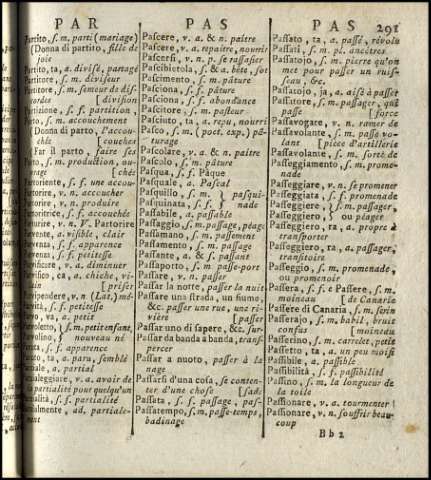 PAR
PAS
PAS
291
Partito, s. m. parti (mariage)
(Donna di partito, fille de
joie
Partito, ta, a. divisé, partagé
Partitore, s. m. diviseur
Partitore, s. m. semeur de dis-
cordes [division
Partizione, s. f. partition,
Parto, s. m. accouchement
(Donna di parto, l'accou-
chée [couches
(Far il parto, faire ses
Parto, s. m. production, ou-
vrage [chée
Partoriente, s. f. une accou-
Partorire, v. n. accoucher
Partorire, v. n. produire
Partoritrice, s. f. accouchée
Parturire, v. n. V. Partorire
Parvente, a. visible, clair
Parvenza, s. f. apparence
Parvenza, s. f. petitesse
Parvificare, v. a. diminuer
Parvifico, ca, a. chiche, vi-
[prisser
Parvipendere, v. n. (Lat.) mé-
Parvità, s. f. petitesse
Parvo, va, a. petit
Parvoletto, s. m. petit enfant,
Parvolino, nouveau né
Parvuta, s. f. apparence
Paruto, ta, a. paru, semblé
Parziale, a. partial
Parzialeggiare, v. a. avoir de
la partialité pour quelqu'un
Parzialità, s. f. partialité
Parzialmente, ad. partiale-
ment
Pascere, v. a. & n. paître
Pascere, v. a. repaître, nourrir
Pascersi, v. n. p. se rassasier
Pascibietola, s. & a. bête, sot
Pascimento, s. m. pâture
Pasciona, s. f. pâture
Pasciona, s. f. abondance
Pascitore, s. m. pasteur
Pasciuto, ta, a. repu, nourri
Pasco, s. m. (poet. exp.) pâ-
turage
Pascolare, v. a. & n. paître
Pascolo, s. m. pâture
Pasqua, s. f. Pâque
Pasquale, a. Pascal
Pasquillo, s. m. } pasqui-
Pasquinata, s. f. } nade
Passabile, a. passable
Passaggio, s. m. passage, péage
Passamano, s. m. passement
Passamento, s. m. passage
Passante, a. & s. passant
Passaporto, s. m. passe-port
Passare, v. n. passer
Passar la notte, passer la nuit
Passare una strada, un fiume,
&c. passer une rue, une ri-
vière [passer
Passar uno di sapere, &c. sur-
Passar da banda a banda, trans-
percer
Passar a nuoto, passer à la
nage
Passarsi d'una cosa, se conten-
ter d'une chose [sade
Passata, s. f. passage, pas-
Passatempo, s. m. passe-temps,
badinage
Passato, ta, a. passé, révolu
Passati, s. m. pl. ancêtres
Passatojo, s. m. pierre qu'on
met pour passer un ruis-
seau, &c.
Passatojo, ja, a. aisé à passer
Passatore, s. m. passager, qui
passe [force
Passavogare, v. n. ramer de
Passavolante, s. m. passe vo-
lant [piece d'artillerie
Passavolante, s. m. sorte de
Passeggiamento, s. m. prome-
nade
Passeggiare, v. n. se promener
Passeggiata, s. f. promenade
Passeggiere, } s. m. passager,
Passeggiero, } ou péager
Passeggiero, ta, a. propre à
transporter
Passeggiero, ta, a. passager,
transitoire
Passeggio, s. m. promenade,
ou promenoir
Passera, s. f. e Passere, s. m.
moineau [de Canarie
Passere di Canaria, s. m. serin
Passerajo, s. m. babil, bruit
confus [moineau
Passerino, s. m. carrelet, petit
Passetto, ta, a. un peu moisi
Passibile, a. passible
Passibilità, s. f. passibilité
Passino, s. m. la longueur de
la toile
Passionare, v. a. tourmenter
Passionare, v. n. souffrir beau-
coup
Bb2